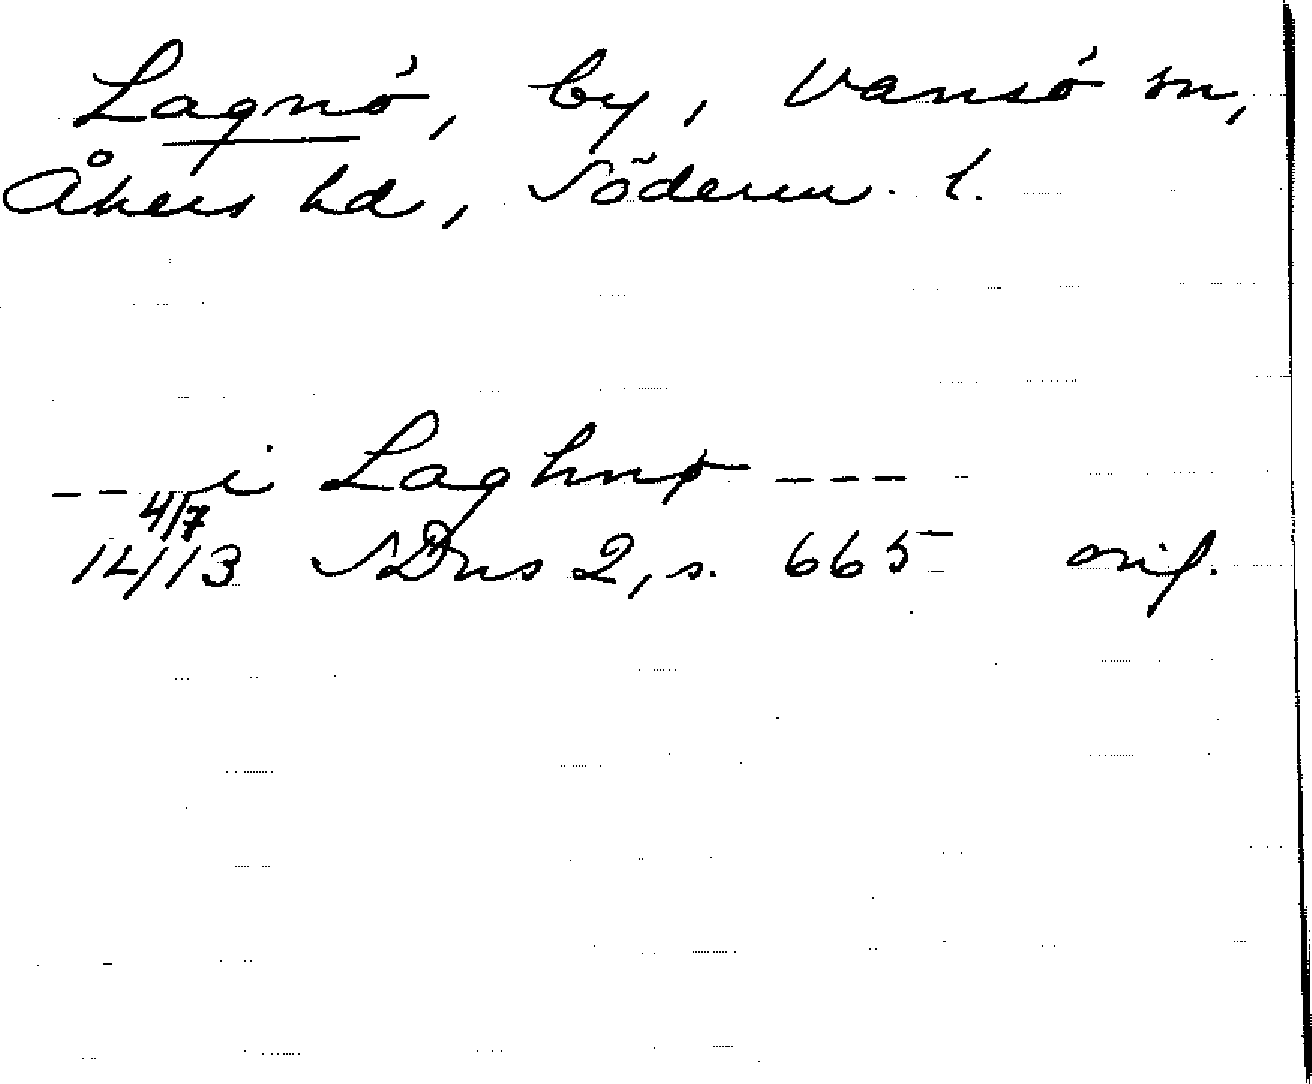 Lagnö, by, Vansö sn,
Åkers hd, Söderm. l.
--- i Laghnø ---
4/7
1413 SDns 2, s. 665 orig.